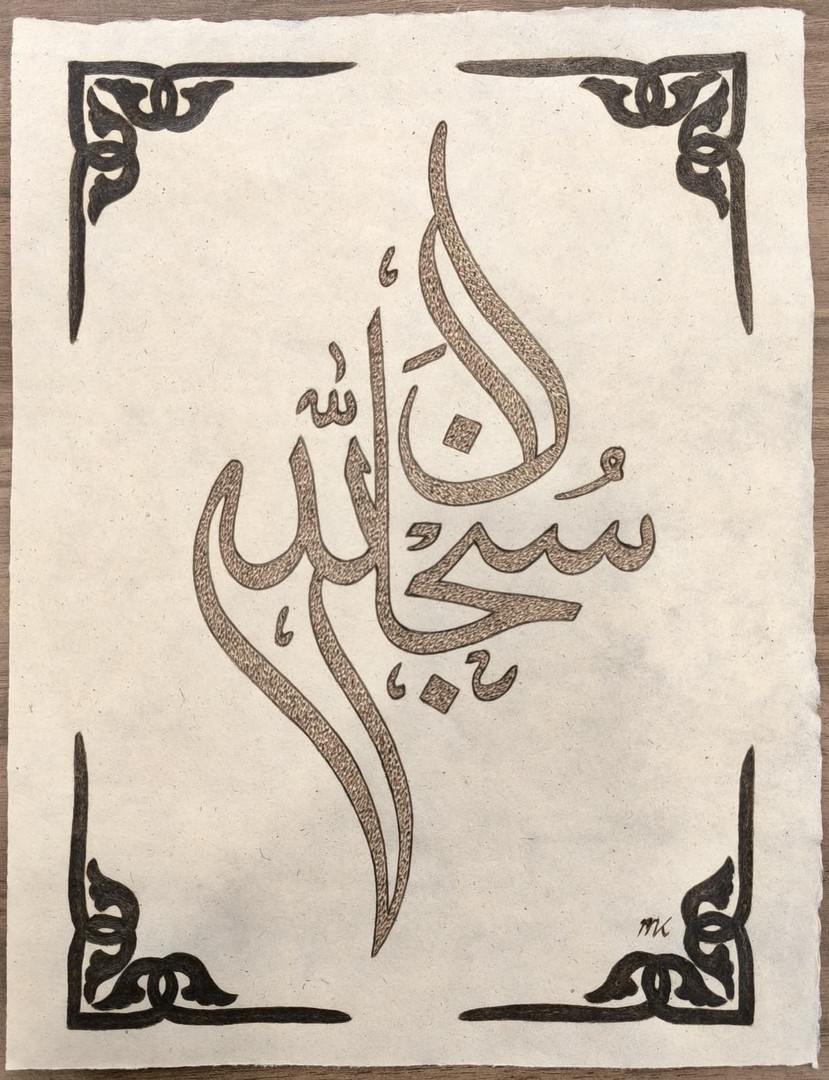 سُبْحَانَ اللّٰهِ
MK